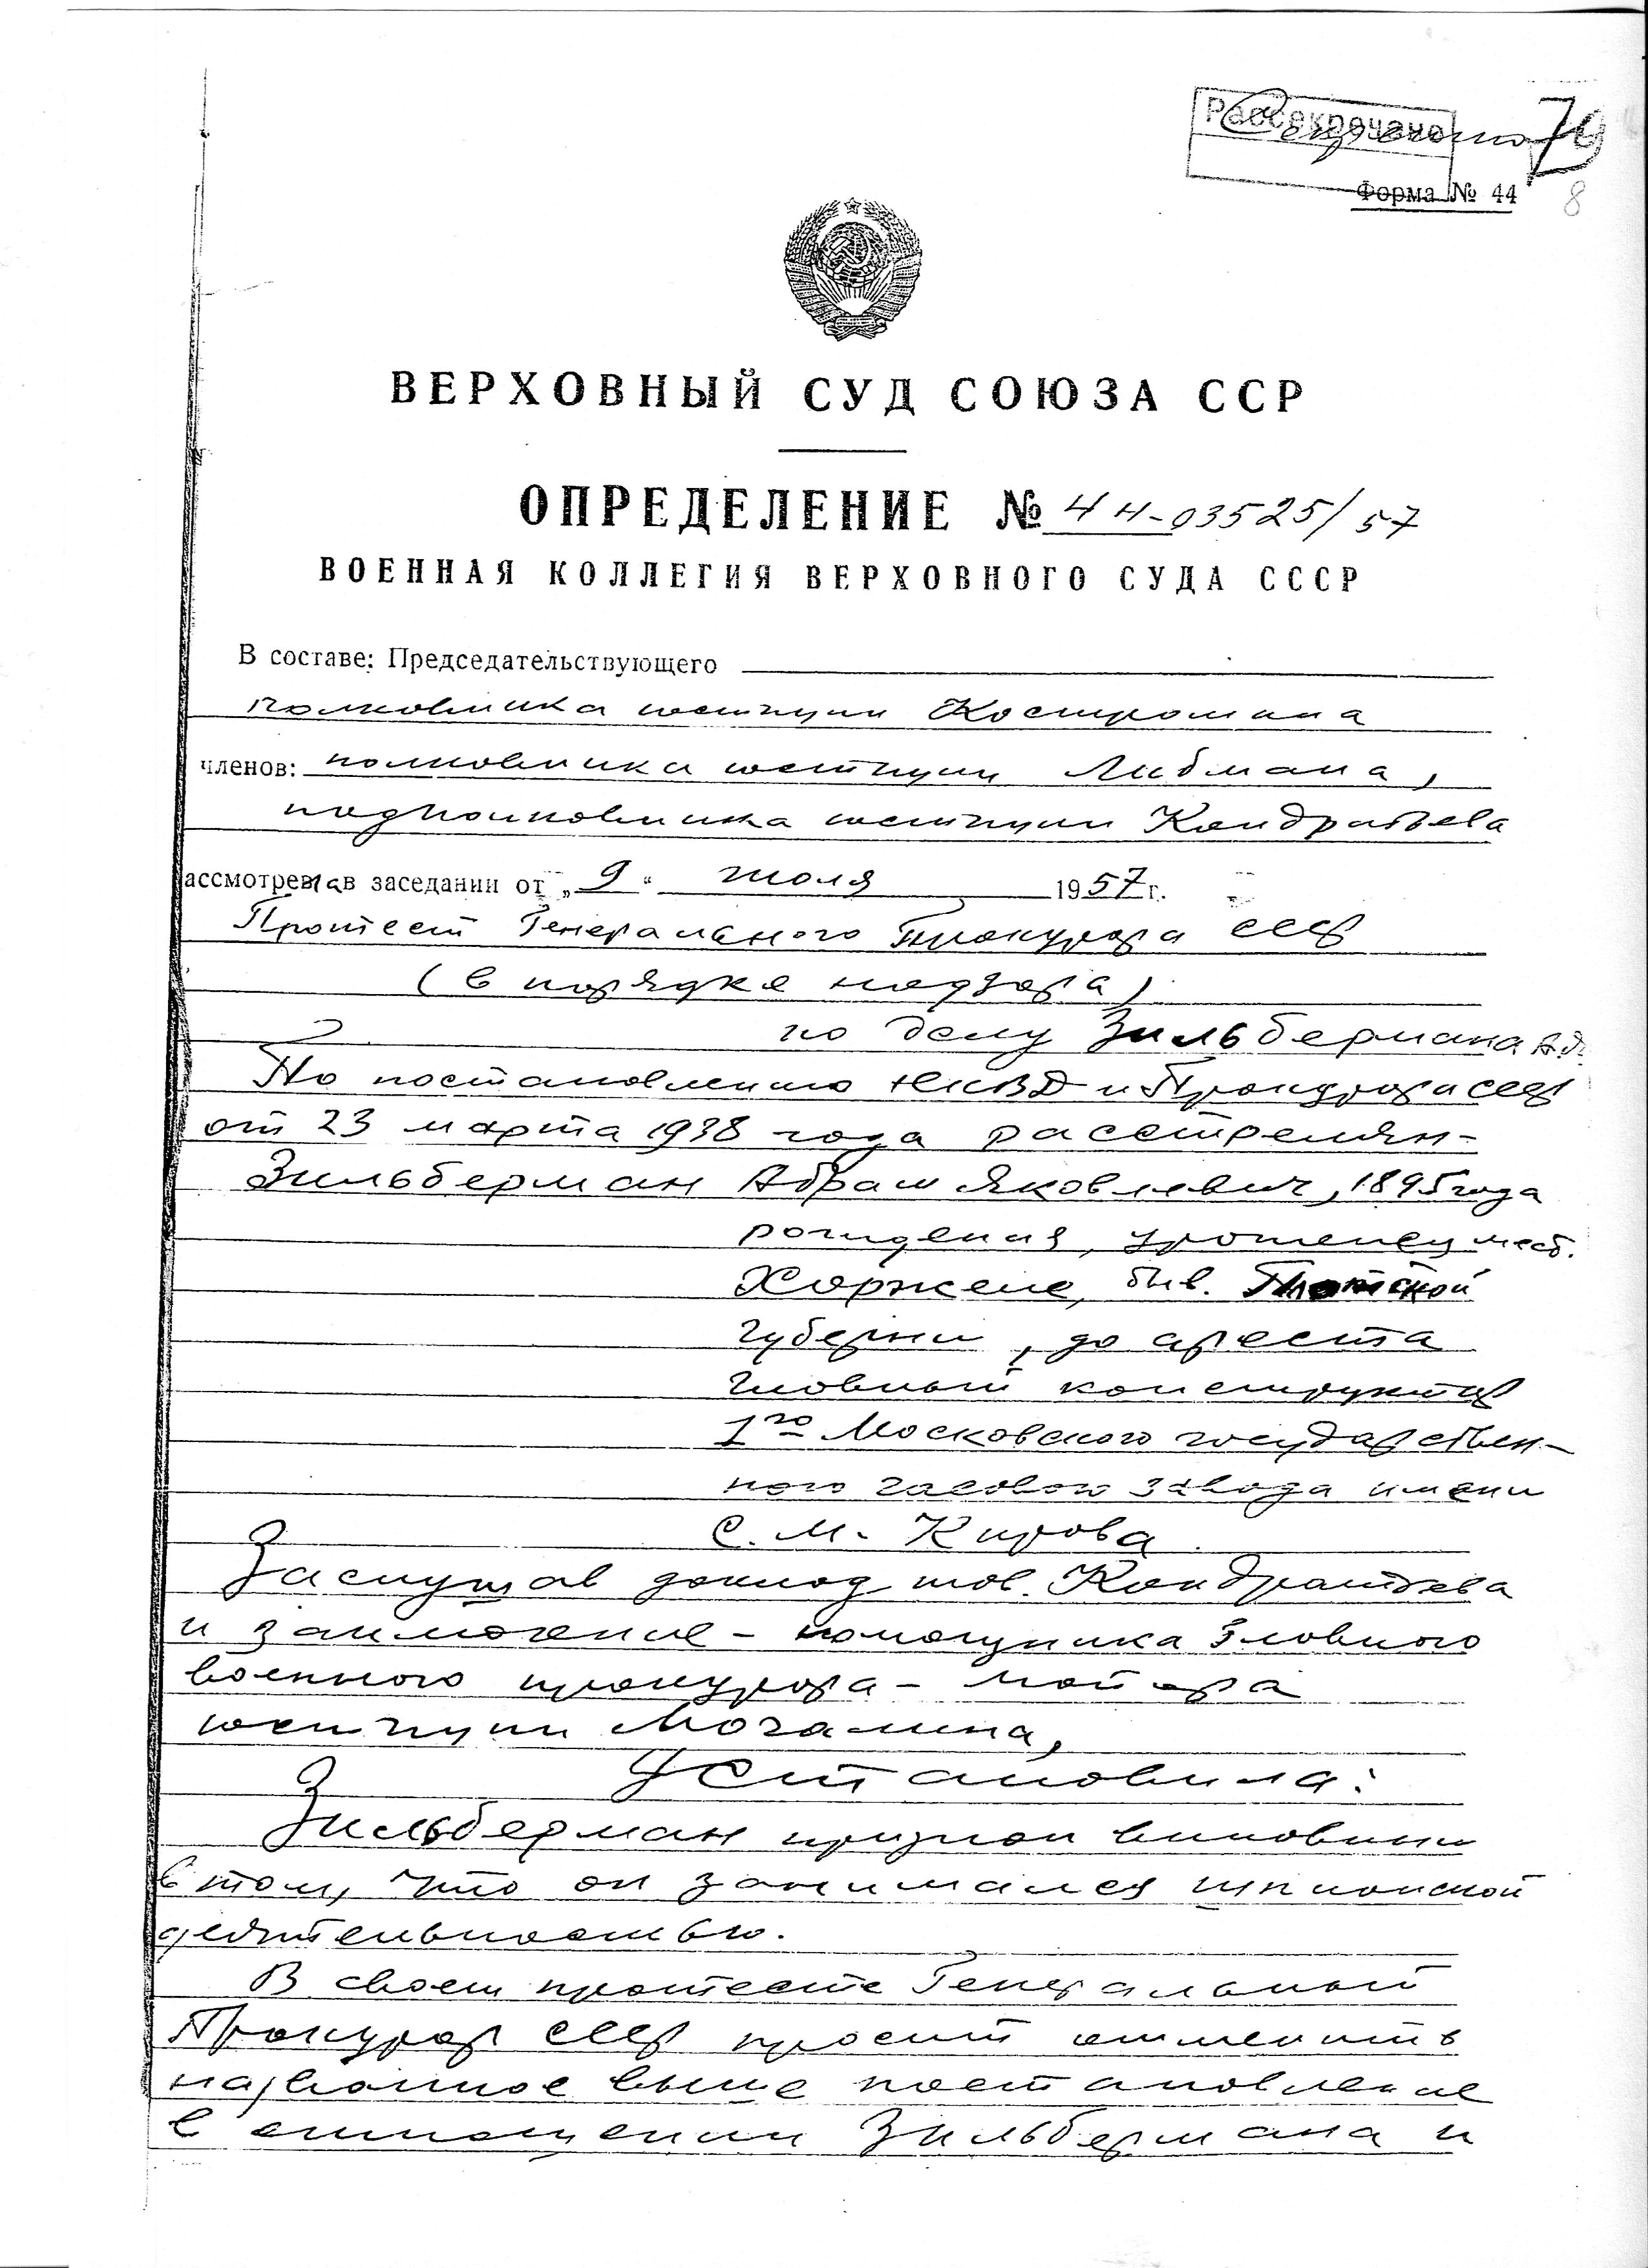 Рассекречено
Секретно 79
Форма № 44 8
ВЕРХОВНЫЙ СУД СОЮЗА ССР
ОПРЕДЕЛЕНИЕ № 4н-03525/57
ВОЕННАЯ КОЛЛЕГИЯ ВЕРХОВНОГО СУДА СССР
В составе: Председательствующего
полковника юстиции Костромина
членов: полковника юстиции Либмана,
подполковника юстиции Кондратьева
ассмотрела в заседании от „9" июля 1957 г.
Протест Генерального Прокурора СССР
(в порядке надзора)
по делу Зильбермана А.Я.
По постановлению НКВД и Прокурора СССР
от 23 марта 1938 года расстрелян-
Зильберман Абрам Яковлевич, 1895 года
рождения, уроженец мест.
Хоржеле, быв. Плотской
губернии, до ареста
главный конструктор
1го Московского государствен-
ного часового завода имени
С. М. Кирова.
Заслушав доклад тов. Кондратьева
и заключение - помощника Главного
военного прокурора - майора
юстиции Мочалина,
Установила:
Зильберман признан виновным
в том, что он занимался шпионской
деятельностью.
В своем протесте Генеральный
Прокурор СССР просит отменить
названное выше постановление
в отношении Зильбермана и